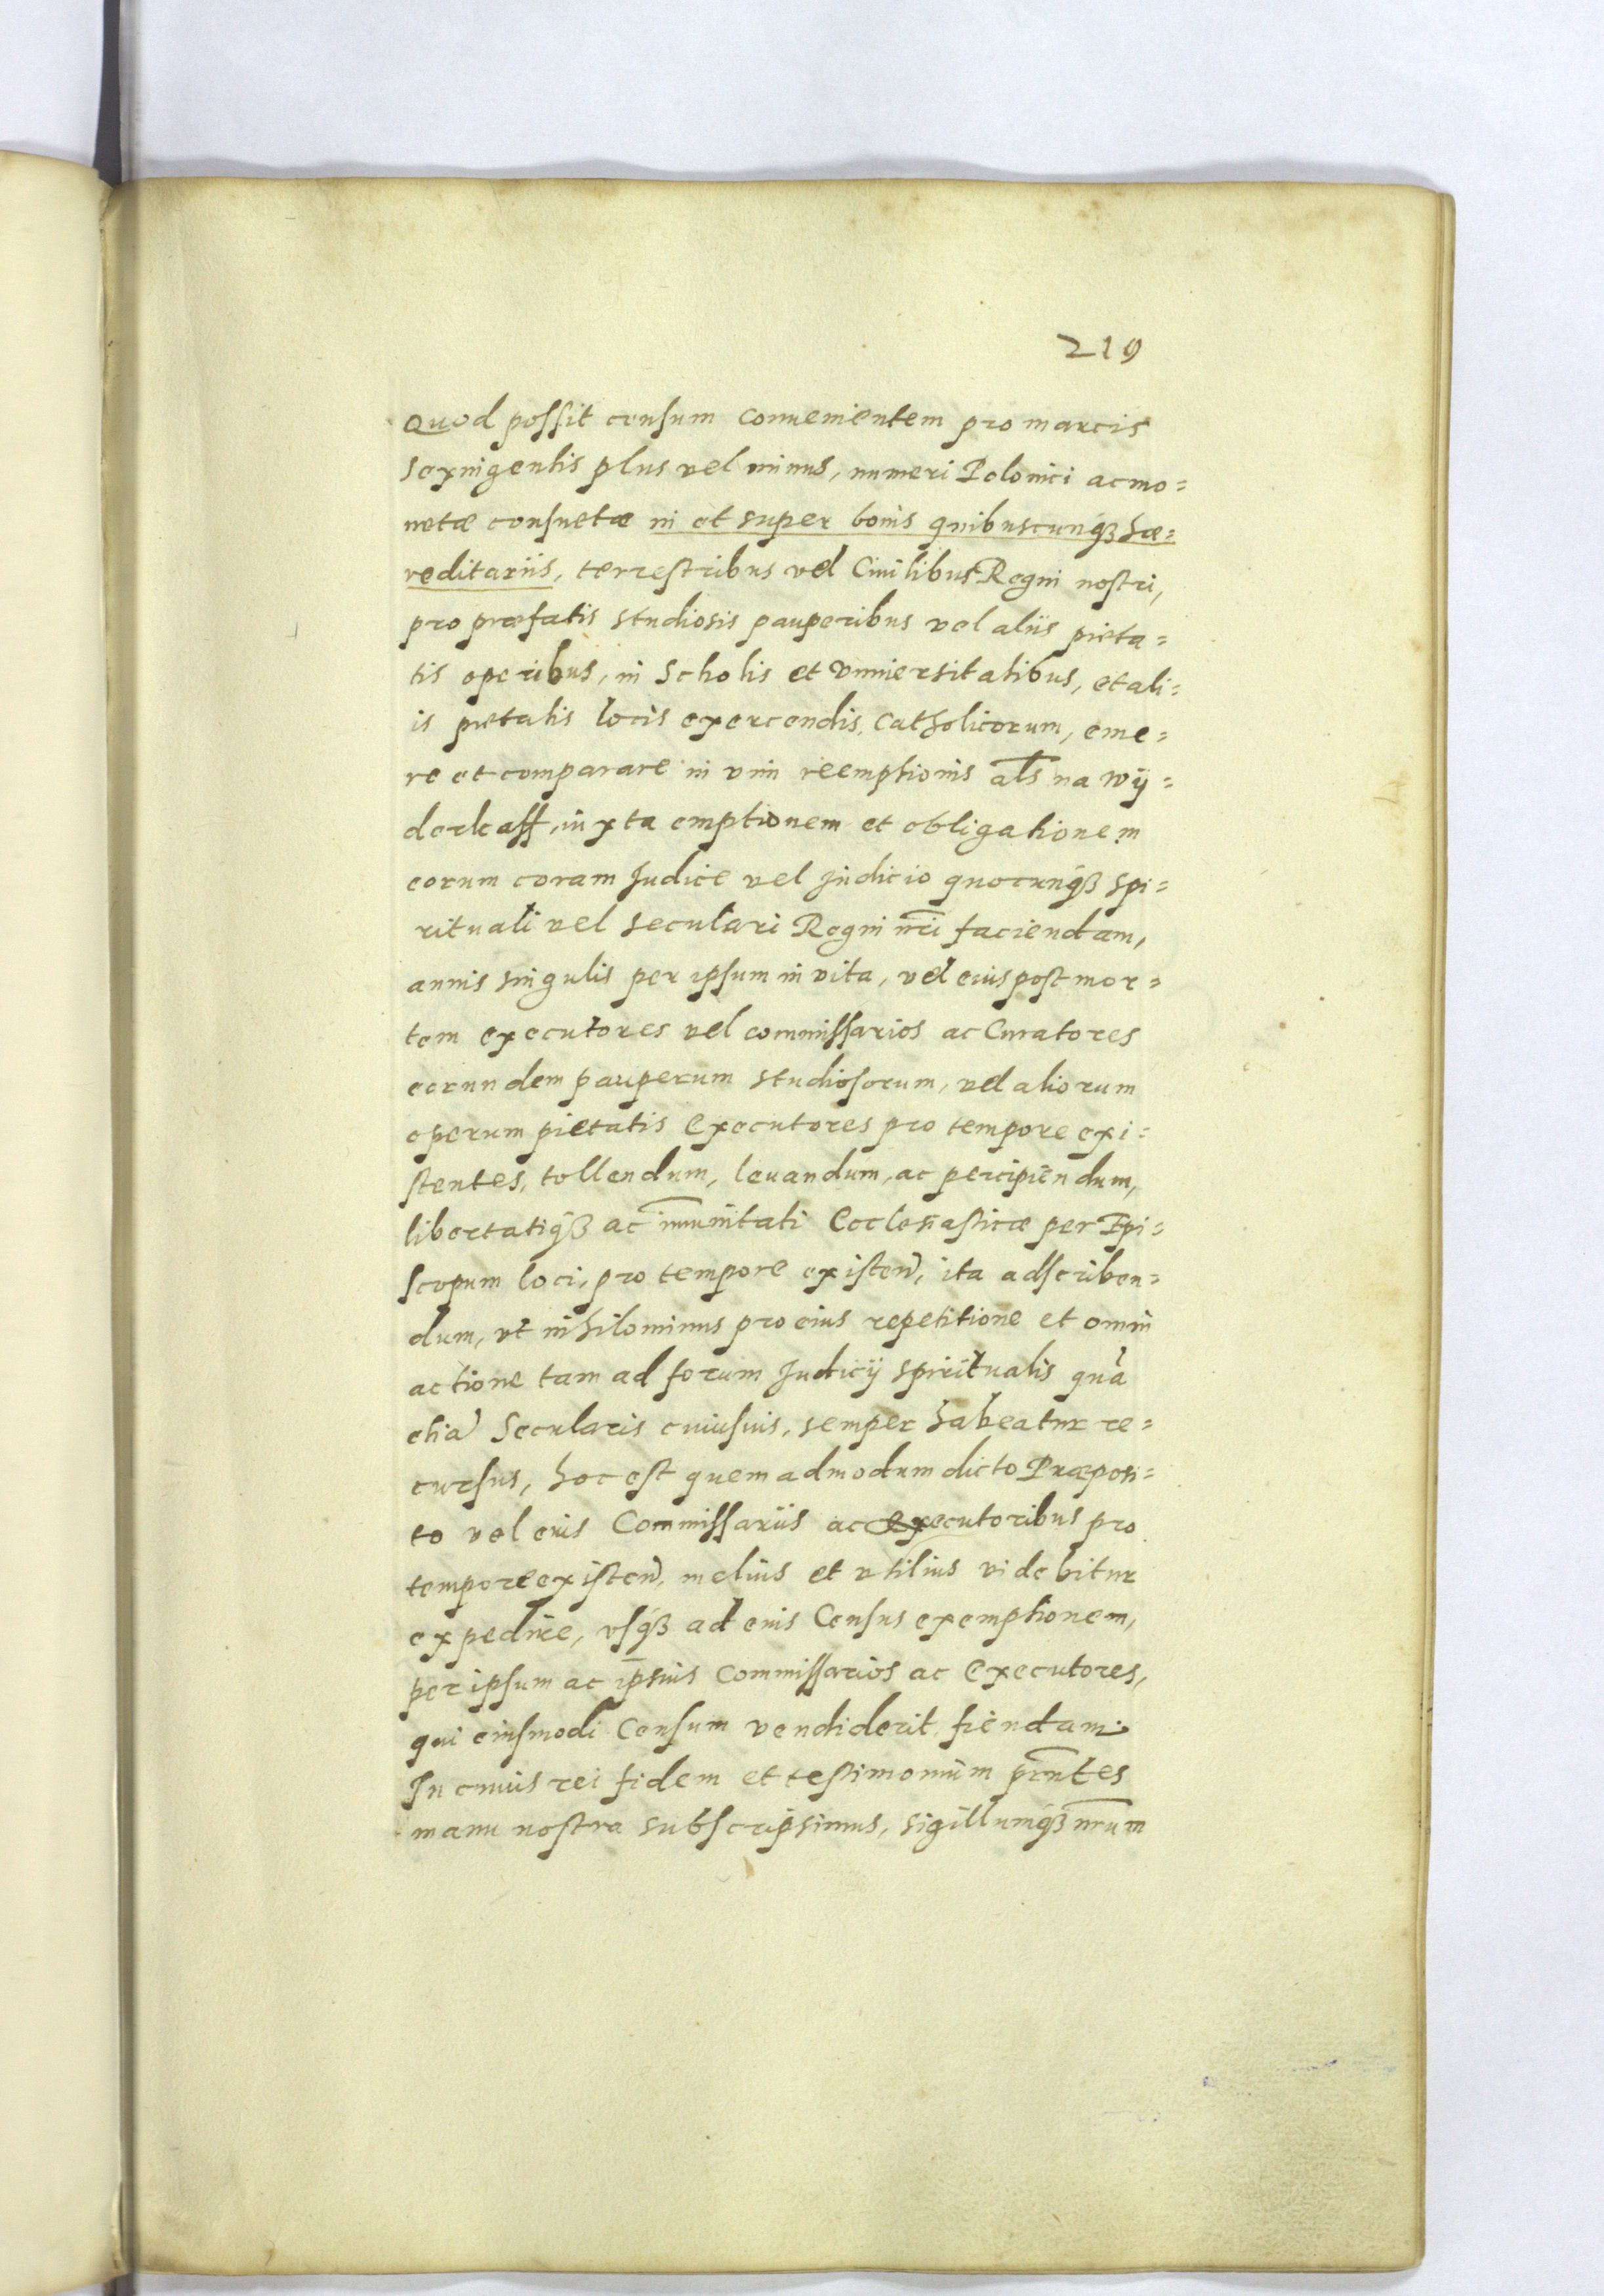 219
Quod possit censum conuenientem pro marcis
sexingentis plus vel minus, numeri Polonici ac mo=
netæ consuetæ in et super bonis quibuscunq₃ hæ=
reditariis, terrestribus vel Ciuilibus Regni nostri,
pro præfatis studiosis pauperibus vel aliis pieta=
tis operibus, in Scholis et Vniuersitatibus, et ali=
is pietatis locis exercendis, Catholicorum, eme=
re et comparare in vim reemptionis al̄s na wy=
derkaff, iuxta emptionem et obligationem
eorum coram Judice vel Judicio quocunq₃ spi=
rituali vel seculari Regni nr̄i faciendam,
annis singulis per ipsum in vita, vel eius post mor=
tem executores vel commissarios ac Curatores
eorundem pauperum studiosorum, vel aliorum
operum pietatis executores pro tempore exi=
stentes, tollendum, leuandum, ac percipiendum,
libertatiq₃ ac im̄unitati Ecclesiasticæ per Epi=
scopum loci, pro tempore existen̄, ita adscriben=
dum, vt nihilominus pro eius repetitione et omni
actione tam ad forum Judicij spiritualis quā
etiā Secularis cuiusuis, semper habeatur re=
cursus, hoc est quemadmodum dicto Præposi=
to vel eius Commissariis ac executoribus pro
tempore existen̄, melius et vtilius videbitur
expedire, vsq₃ ad eius Census exemptionem,
per ipsum ac ipsius Commissarios ac executores,
qui eiusmodi Censum vendiderit fiendam.
In cuius rei fidem et testimonium pr̄ntes
manu nostra subscripsimus, sigillumq₃ nr̄um